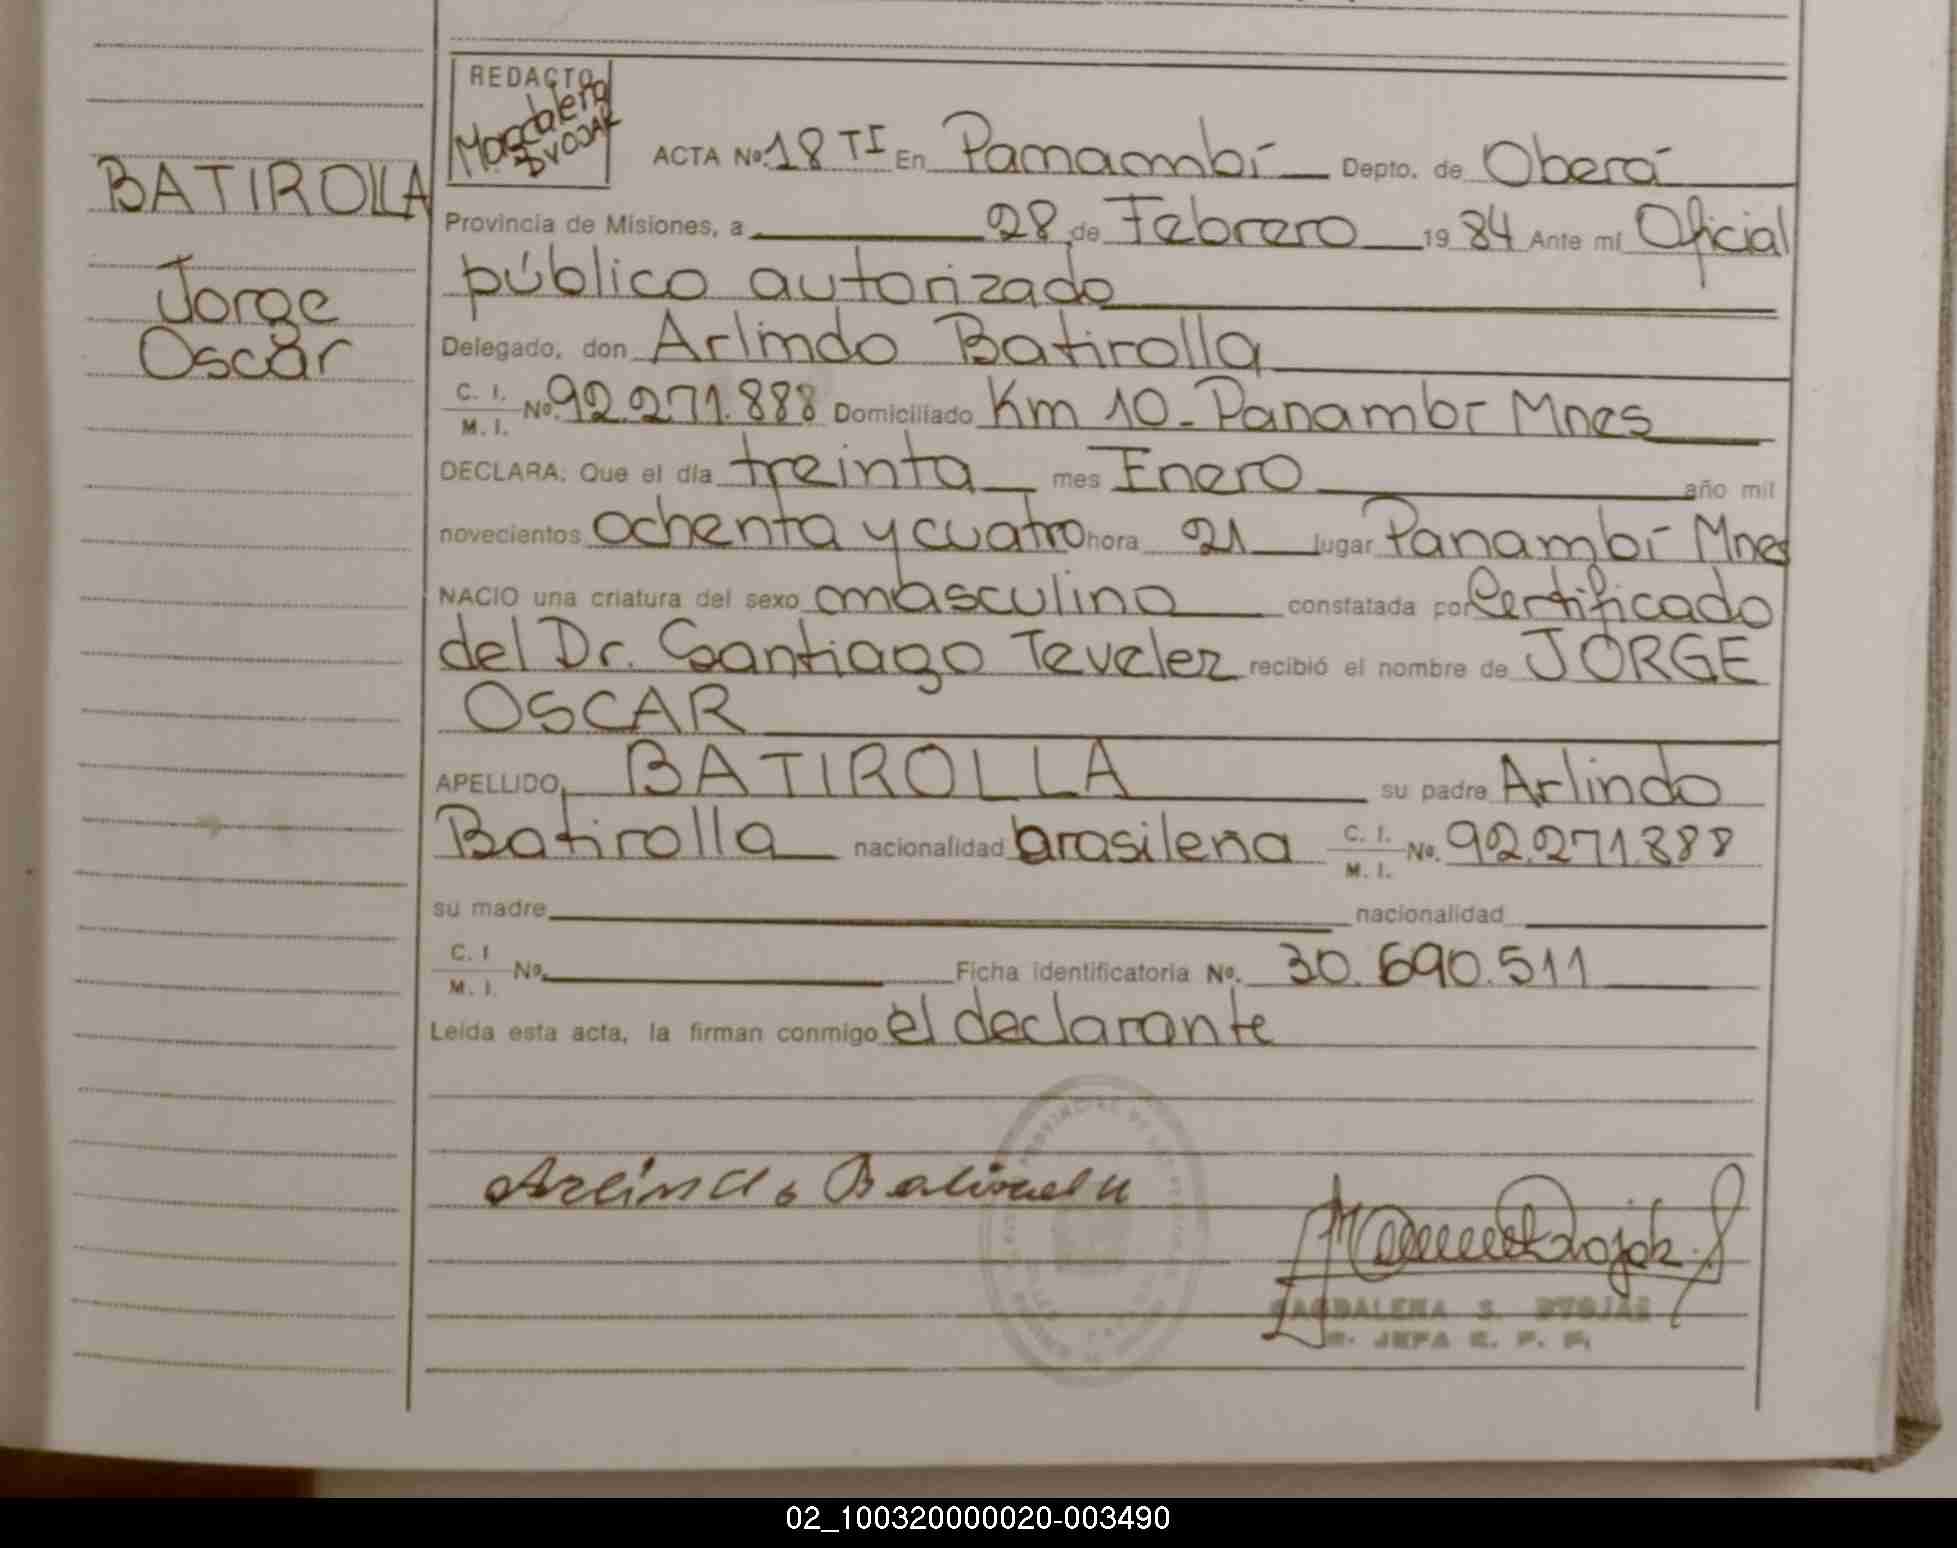 REDACTO
Magdalena
DVOJAK
BATIROLLA
Jorge
Oscar
ACTA Nº 18 TI En Panambí Depto. de Oberá
Provincia de Misiones, a 28 de Febrero 1984 Ante mí Oficial
público autorizado
Delegado, don Arlindo Batirolla
C. I. M. I. Nº 92.271.888 Domiciliado Km 10 - Panambí Mnes
DECLARA: Que el día treinta mes Enero año mil
novecientos ochenta y cuatro hora 21 lugar Panambí Mnes
NACIO una criatura del sexo masculino constatada por Certificado
del Dr. Santiago Teveler recibió el nombre de JORGE
OSCAR
APELLIDO, BATIROLLA su padre Arlindo
Batirolla nacionalidad brasilena C. I. M. I. Nº. 92.271.888
su madre nacionalidad
C. I M. I. Nº. Ficha identificatoria Nº. 30.690.511
Leída esta acta, la firman conmigo el declarante
Arlindo Batirolla
MAGDALENA S. DVOJAK
JEFA
02_100320000020-003490